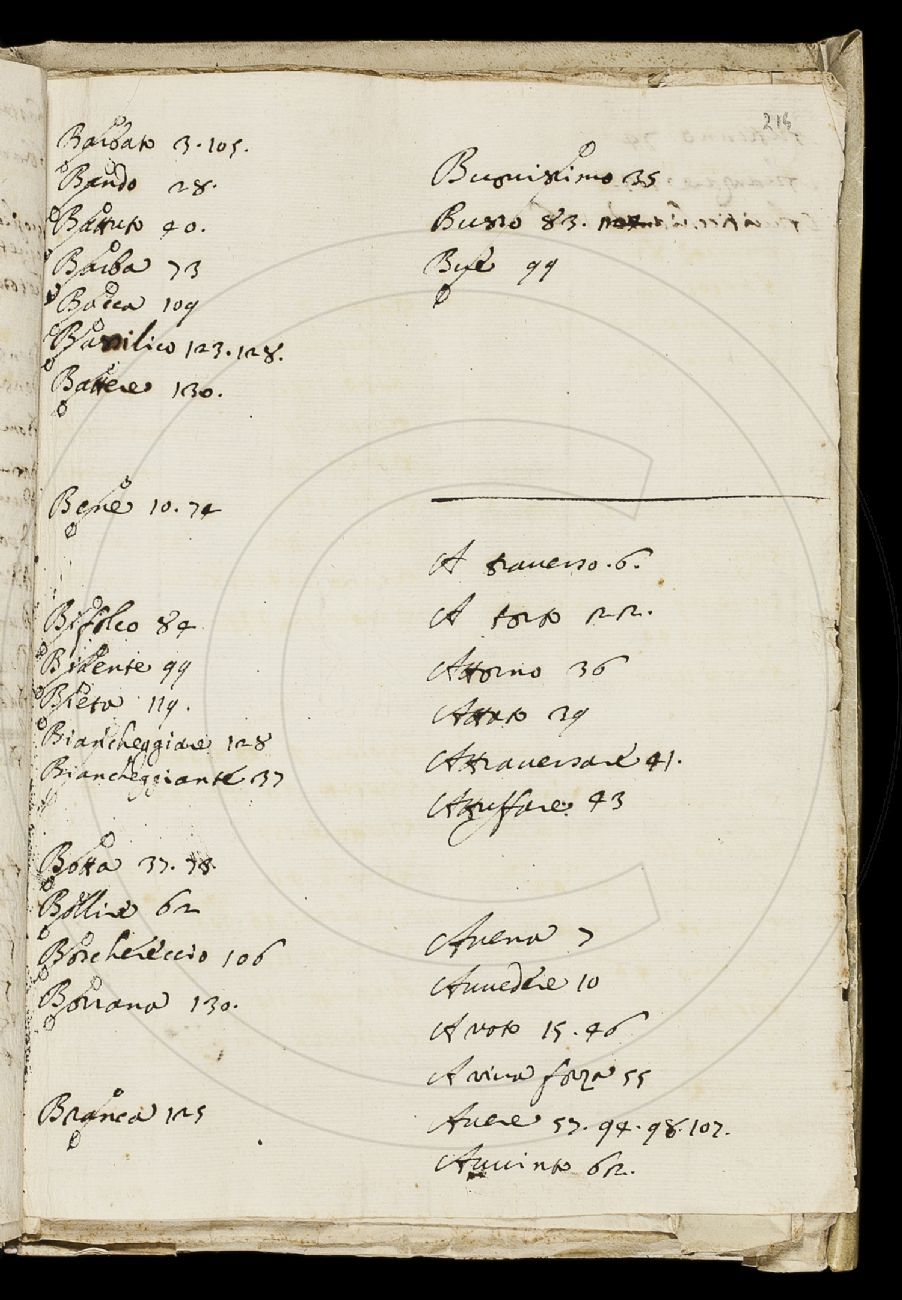 215
Barbato 3. 105.
Bando 28.
Battuto 40.
Barba 73
Bacca 109
Bassilico 123. 128.
Battere 130.
Bene 10. 74
Bifolco 84
Bidente 99
Bieta 119.
Biancheggiare 128
Biancheggiante 37
Botta 37. 78
Bollire 62
Boschereccio 106
Borrana 130.
Branca 125
Buonissimo 35
Busso 83.
99
A trauerso. 6.
A torto 22.
Attorno 36
Attato 29
Attrauersare 41.
Attuffare. 43
Auena 7
Auuedere 10
A voto 15. 46
A viua forza 55
Auere 57. 94. 98. 107.
Auuinto 62.